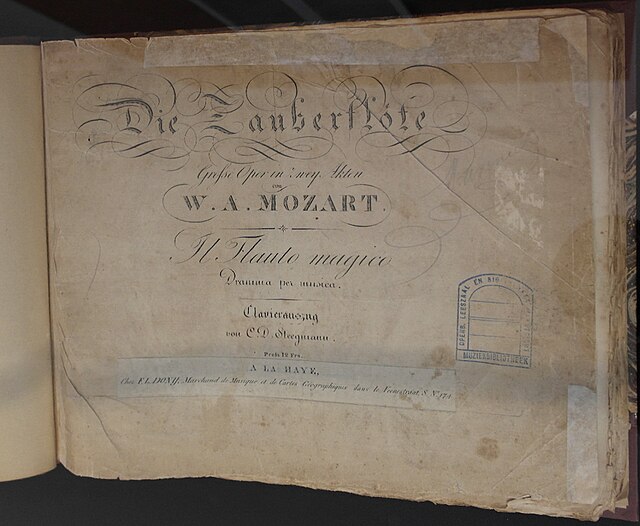 Die Zauberflöte
Grosse Oper in zwey Akten
von
W. A. MOZART.
Il Flauto magico
Dramma per musica.
Clavierauszug
von C. D. Stegmann.
Preis 12 Frs.
A LA HAYE,
Chez F. L. DONY, Marchand de Musique et de Cartes Géographiques dans le Veenestraat S. No. 174
OPENB. LEESZAAL EN
MUZIEKBIBLIOTHEEK